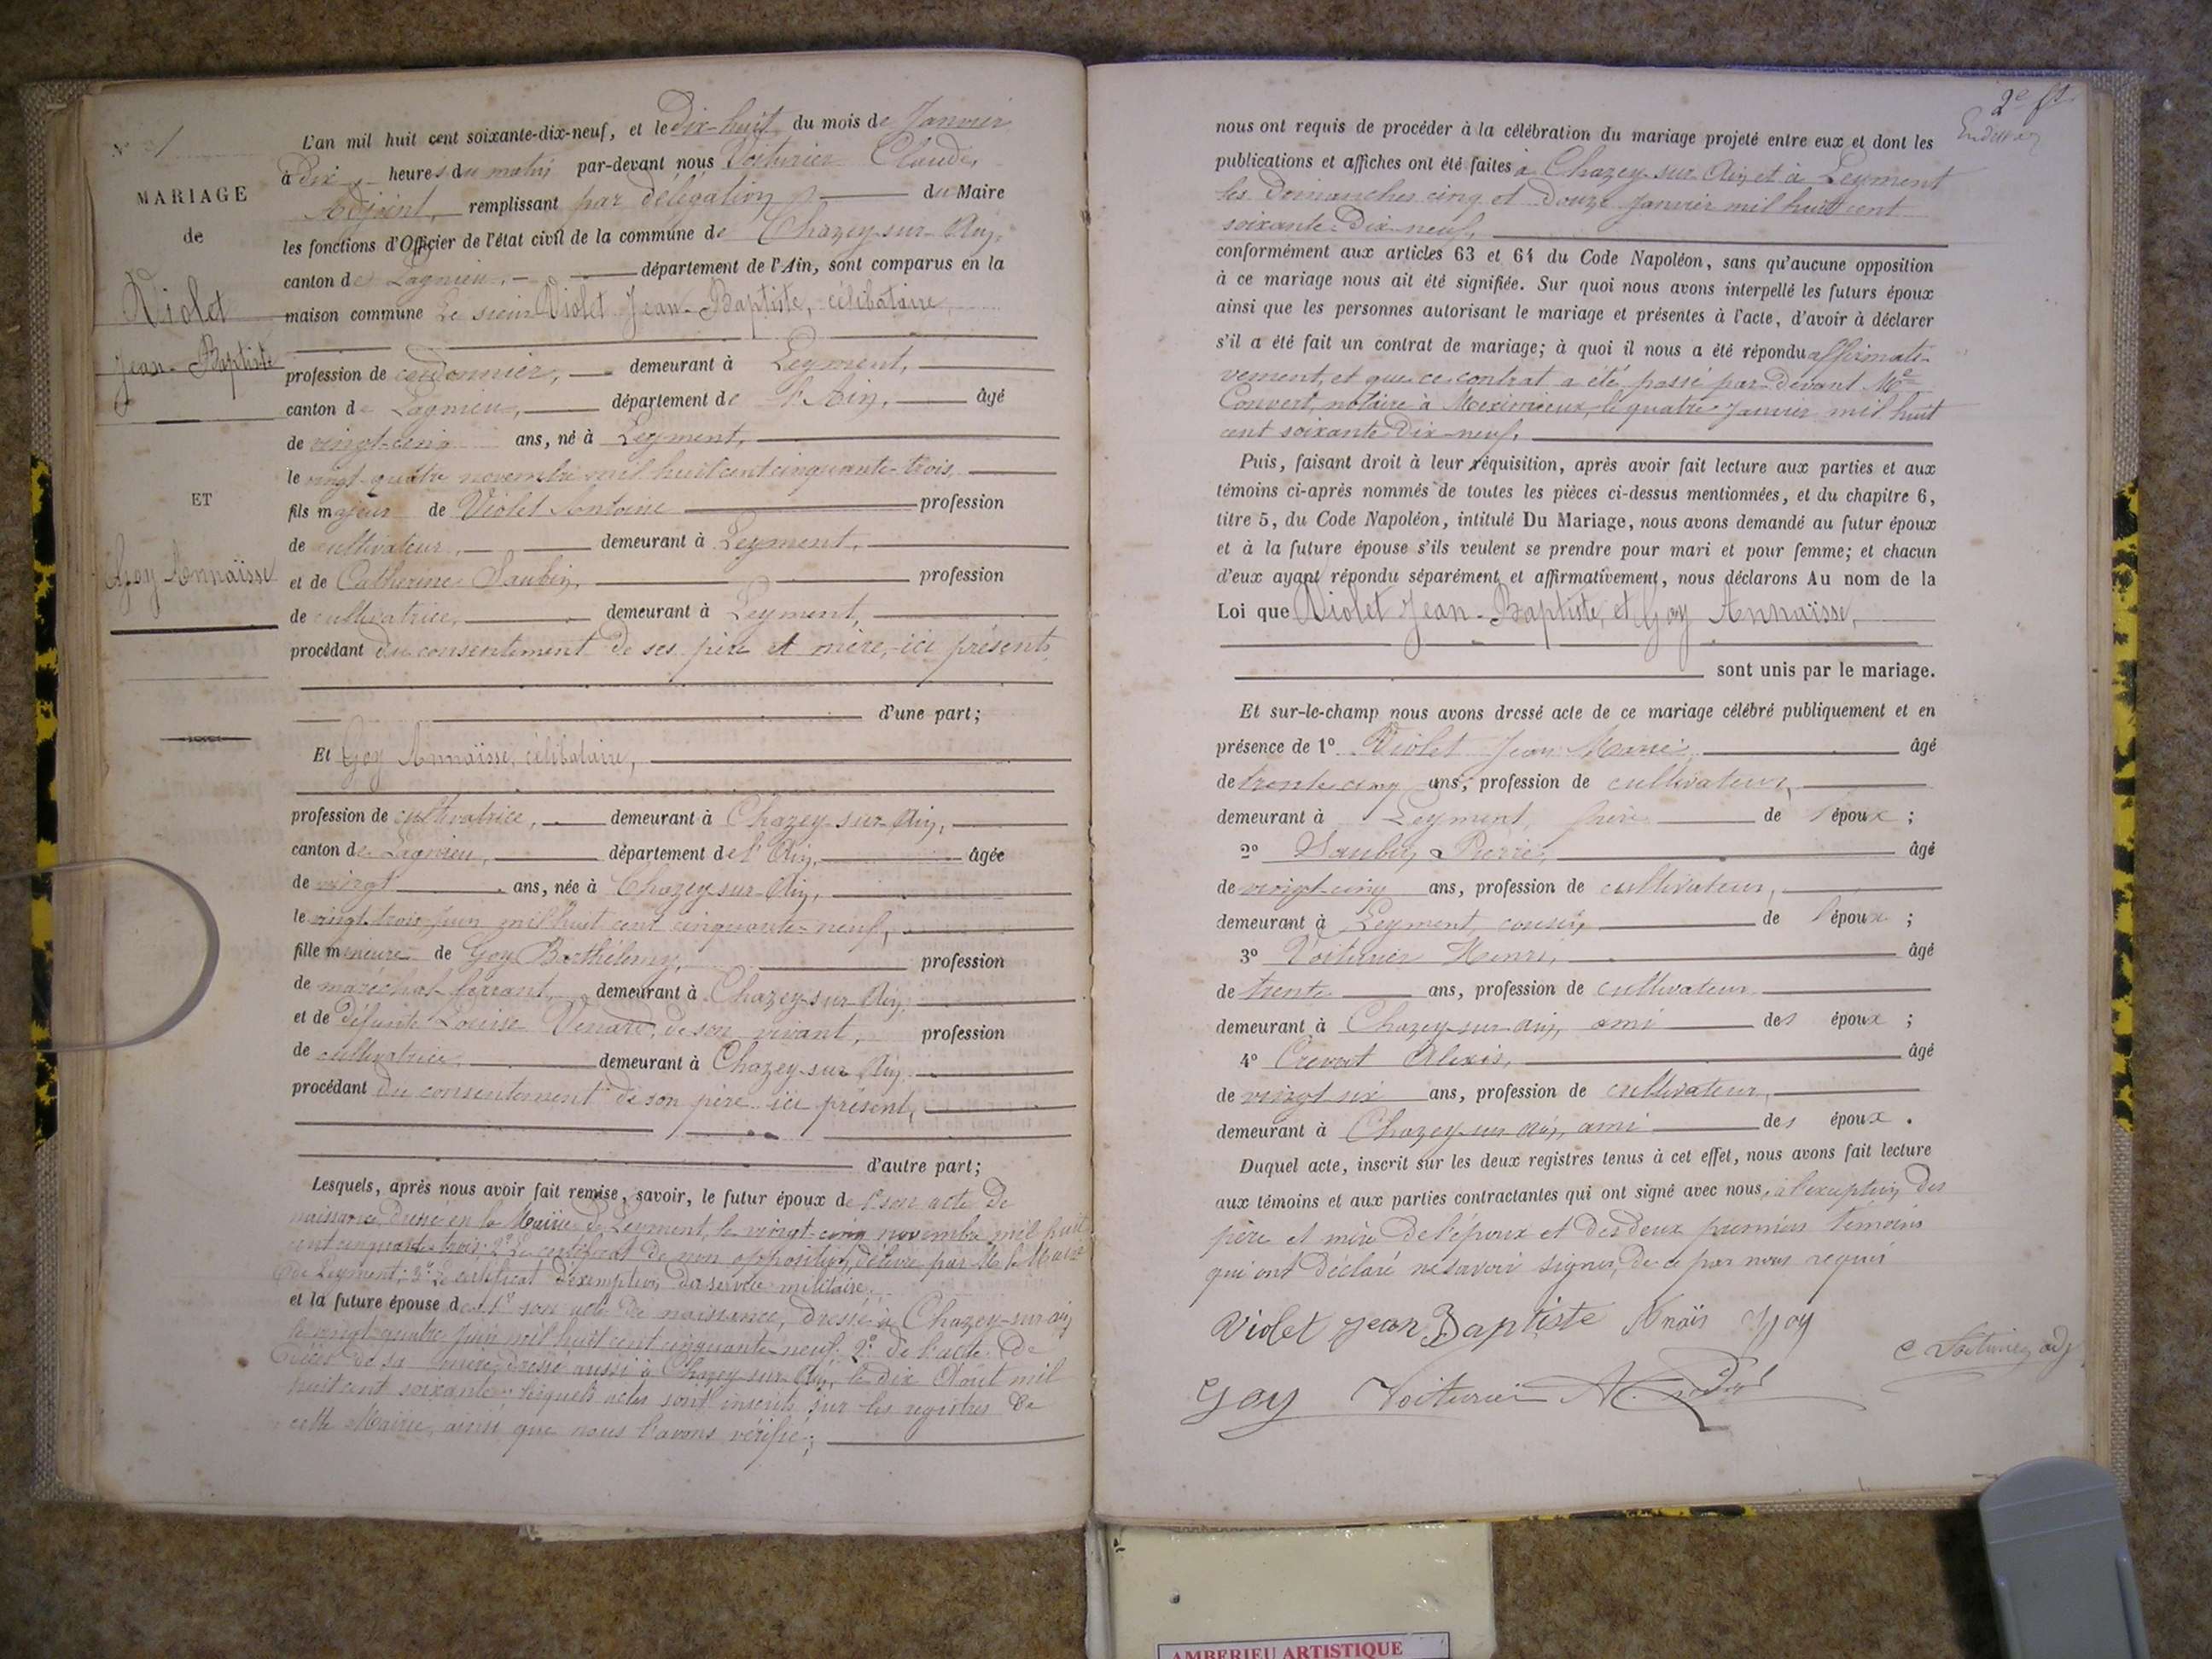 N° 1
MARIAGE
de
Violet
Jean-Baptiste
ET
Goy Annaïsse
L'an mil huit cent soixante-dix-neuf, et le Dix-huit du mois de Janvier
à Dix heures du matin par-devant nous Voiturier Claude,
Adjoint, remplissant par délégation du Maire
les fonctions d'Officier de l'état civil de la commune de Chazey-sur-Ain,
canton de Lagnieu, département de l'Ain, sont comparus en la
maison commune Le sieur Violet Jean-Baptiste, célibataire,
profession de cordonnier, demeurant à Leyment,
canton de Lagnieu, département de l'Ain, âgé
de vingt-cinq ans, né à Leyment,
le vingt-quatre novembre mil huit cent cinquante-trois,
fils majeur de Violet Antoine profession
de cultivateur, demeurant à Leyment,
et de Catherine Saubin, profession
de cultivatrice, demeurant à Leyment,
procédant du consentement de ses père et mère, ici présents,
d'une part;
Et Goy Annaïsse, célibataire,
profession de cultivatrice, demeurant à Chazey-sur-Ain,
canton de Lagnieu, département de l'Ain, âgée
de vingt ans, née à Chazey-sur-Ain,
le vingt-trois Juin mil huit cent cinquante-neuf,
fille mineure de Goy Barthélemy, profession
de maréchal-ferrant, demeurant à Chazey-sur-Ain,
et de défunte Louise Venard, de son vivant, profession
de cultivatrice, demeurant à Chazey-sur-Ain,
procédant du consentement de son père ici présent,
d'autre part;
Lesquels, après nous avoir fait remise, savoir, le futur époux de 1° son acte de
naissance, dressé en la Mairie de Leyment, le vingt-cinq novembre mil huit
cent cinquante-trois; 2° Le certificat de non opposition, délivré par M. le Maire
de Leyment; 3° Le certificat d'exemption du service militaire,
et la future épouse de 1° son acte de naissance, dressé à Chazey-sur-ain
le vingt-quatre Juin mil huit cent cinquante-neuf. 2° de l'acte de
Décès de sa mère, dressé aussi à Chazey-sur-Ain, le dix Août mil
huit cent soixante- lesquels actes sont inscrits sur les registres de
cette Mairie, ainsi que nous l'avons vérifié;
2e ft
nous ont requis de procéder à la célébration du mariage projeté entre eux et dont les
publications et affiches ont été faites à Chazey-sur-Ain et à Leyment
les Dimanches cinq et Douze Janvier mil huit cent
soixante-Dix-neuf,
conformément aux articles 63 et 64 du Code Napoléon, sans qu'aucune opposition
à ce mariage nous ait été signifiée. Sur quoi nous avons interpellé les futurs époux
ainsi que les personnes autorisant le mariage et présentes à l'acte, d'avoir à déclarer
s'il a été fait un contrat de mariage; à quoi il nous a été répondu affirmati-
vement, et que ce contrat a été passé par-devant Me
Convert, notaire à Meximieux, le quatre Janvier mil huit
cent soixante Dix-neuf,
Puis, faisant droit à leur réquisition, après avoir fait lecture aux parties et aux
témoins ci-après nommés de toutes les pièces ci-dessus mentionnées, et du chapitre 6,
titre 5, du Code Napoléon, intitulé Du Mariage, nous avons demandé au futur époux
et à la future épouse s'ils veulent se prendre pour mari et pour femme; et chacun
d'eux ayant répondu séparément et affirmativement, nous déclarons Au nom de la
Loi que Violet Jean-Baptiste, et Goy Annaïsse,
sont unis par le mariage.
Et sur-le-champ nous avons dressé acte de ce mariage célébré publiquement et en
présence de 1° Violet Jean Marie, âgé
de trente cinq ans, profession de cultivateur,
demeurant à Leyment, frère de l'époux;
2° Saubin Pierre, âgé
de vingt-cinq ans, profession de cultivateur,
demeurant à Leyment, cousin, de l'époux;
3° Voiturier Henri, âgé
de trente ans, profession de cultivateur
demeurant à Chazey-sur-ain, ami des époux;
4° Crevat Alexis, âgé
de vingt six ans, profession de cultivateur,
demeurant à Chazey-sur-Ain, ami des époux.
Duquel acte, inscrit sur les deux registres tenus à cet effet, nous avons fait lecture
aux témoins et aux parties contractantes qui ont signé avec nous, à l'exception des
père et mère de l'époux et des deux premiers témoins
qui ont déclaré ne savoir signer, de ce par nous requis
Violet Jean Baptiste Anaïs Goy
C Voiturier adj
Goy Voiturier
AMBERIEU ARTISTIQUE